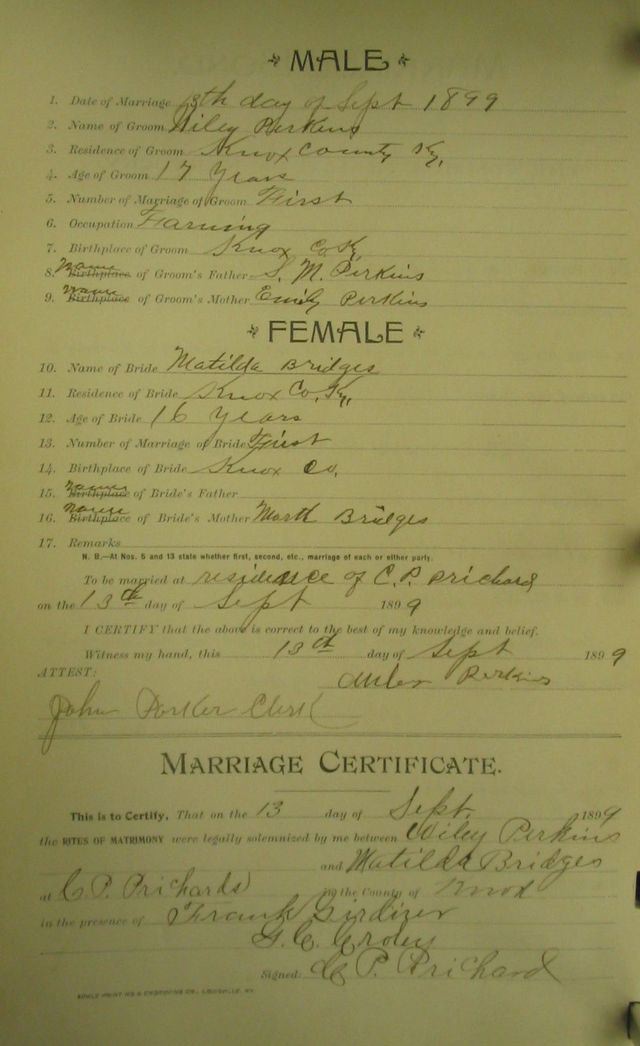 MALE
1. Date of Marriage 13th day of Sept 1899
2. Name of Groom Wiley Perkins
3. Residence of Groom Knox County Ky.
4. Age of Groom 17 Years
5. Number of Marriage of Groom First
6. Occupation Farming
7. Birthplace of Groom Knox Co. Ky.
8. Birthplace Name of Groom's Father S. M. Perkins
9. Birthplace Name of Groom's Mother Emily Perkins
FEMALE
10. Name of Bride Matilda Bridges
11. Residence of Bride Knox Co. Ky.
12. Age of Bride 16 Years
13. Number of Marriage of Bride First
14. Birthplace of Bride Knox Co.
15. Birthplace Name of Bride's Father
16. Birthplace Name of Bride's Mother Marth Bridges
17. Remarks
N. B.—At Nos. 5 and 13 state whether first, second, etc., marriage of each or either party.
To be married at residence of C. P. Prichard
on the 13th day of Sept 1899
I CERTIFY that the above is correct to the best of my knowledge and belief.
Witness my hand, this 13th day of Sept 1899
ATTEST: Perkins
John Parker Clerk
MARRIAGE CERTIFICATE.
This is to Certify, That on the 13 day of Sept. 1899
the RITES OF MATRIMONY were legally solemnized by me between Wiley Perkins
and Matilda Bridges
at C. P. Prichards in the County of Knox
in the presence of Frank
G. C. Croley
Signed: C. P. Prichard